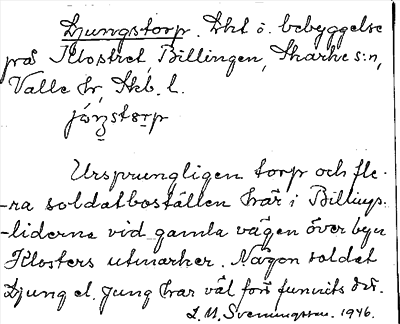 Djungstorp. Skt o. bebyggelse
på Klostret Billingen, Skarke s:n,
Valle hr, Skb. l.
Ursprungligen torp och fle-
-ra soldatboställen här i Billings-
-liderna vid gamla vägen över byn
Klosters utmarker. Någon soldat
Djung el. Jung har väl förr funnits där.
L. M. Svenungsson. 1946.